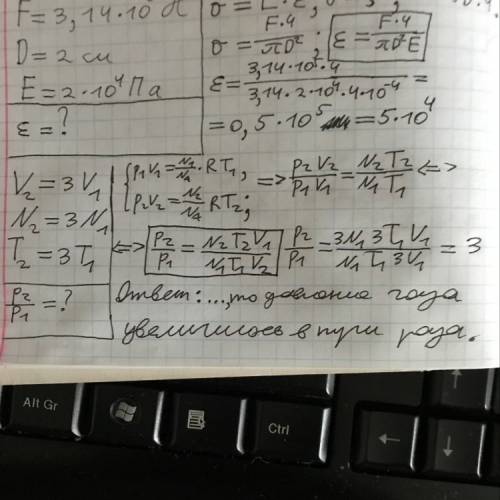 F = 3,14·10⁵ Н
D = 2 см
E = 2·10⁴ Па
ε = ?
σ = F·4/πD² ; ε = F·4/πD²E
ε = 3,14·10⁵·4/3,14·2·10⁴·4·10⁻⁴ =
= 0,5·10⁵ = 5·10⁴
V₂ = 3V₁
N₂ = 3N₁
T₂ = 3T₁
p₂/p₁ = ?
{ p₁V₁ = N₁/Nₐ · RT₁,
p₂V₂ = N₂/Nₐ RT₂;
=> p₂V₂/p₁V₁ = N₂T₂/N₁T₁ <=>
<=> p₂/p₁ = N₂T₂V₁/N₁T₁V₂ p₂/p₁ = 3N₁3T₁V₁/N₁T₁3V₁ = 3
Ответ: ..., то давление газа
увеличилось в три раза.
Alt Gr
Ctrl